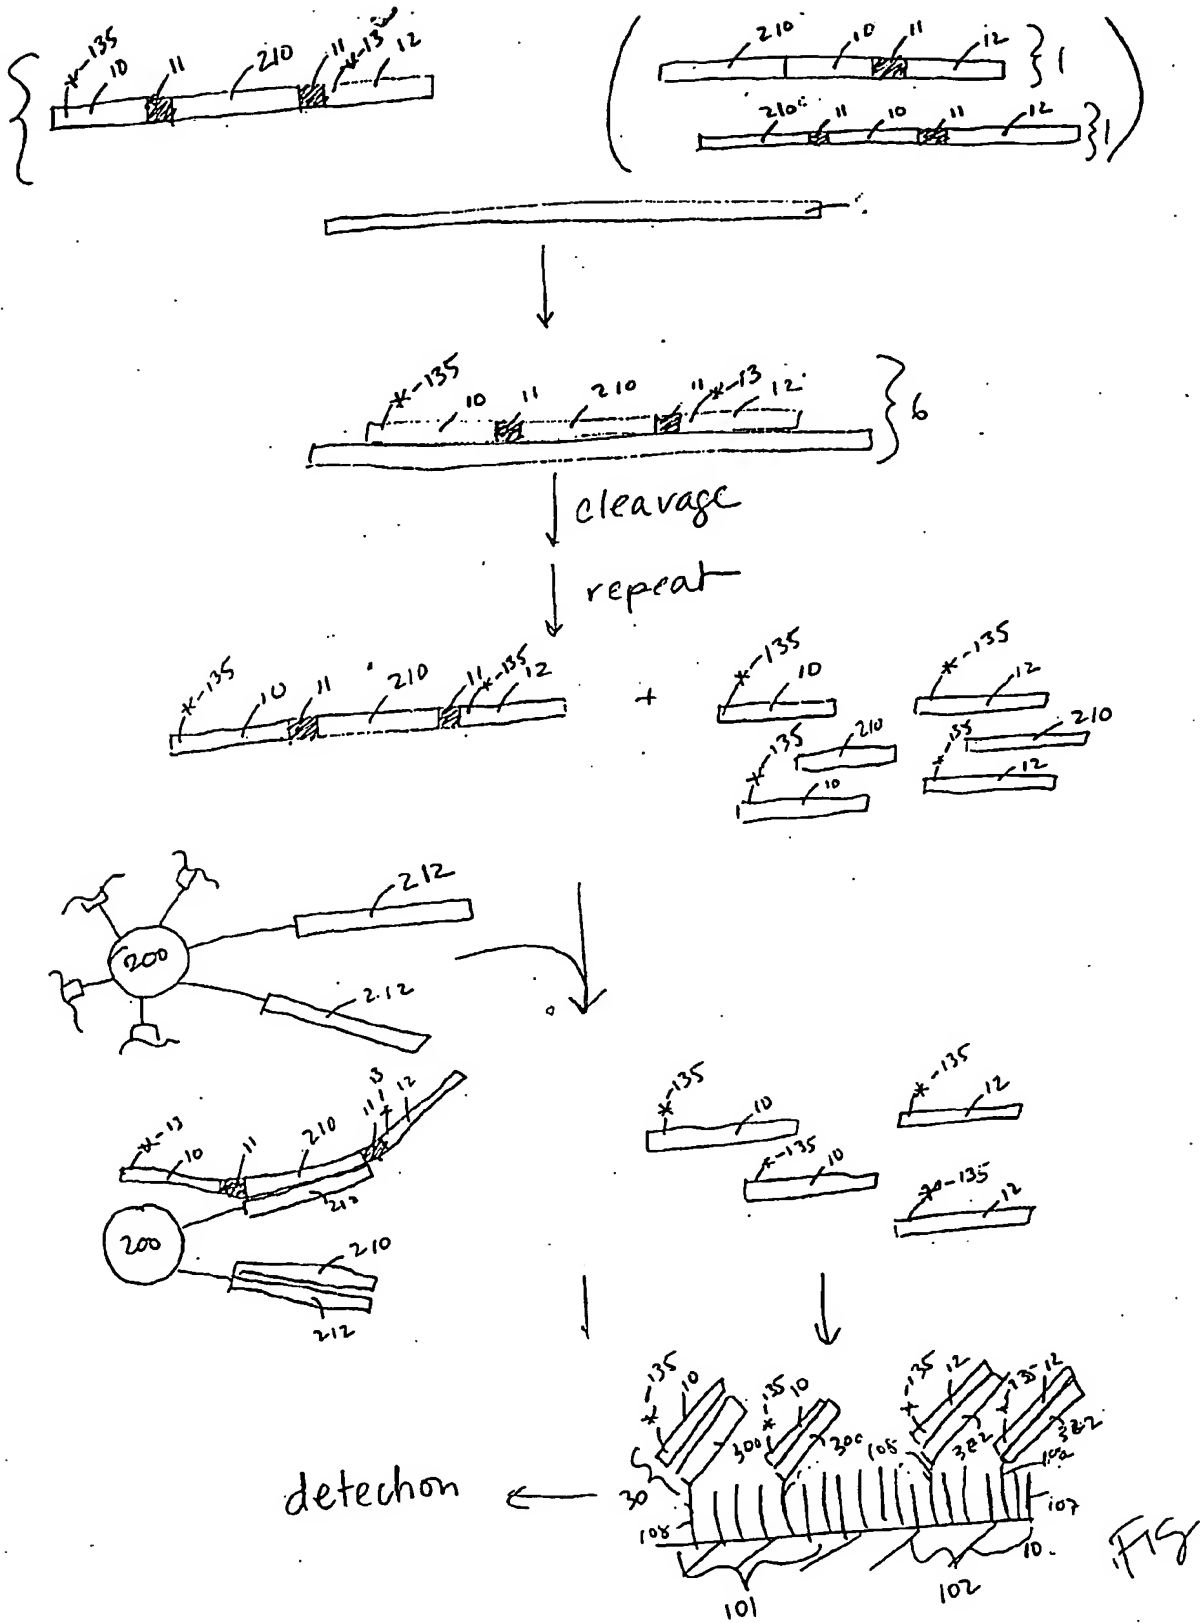 *-135 10 11 210 11 *-13 12
210 10 11 12 } 1
210 11 10 11 12 } 1
*-135 10 11 210 11 *-13 12 } 6
cleavage
repeat
*-135 10 11 210 11 *-135 12 + *-135 10 *-135 12
*-135 210 10 210 12
200 212
212
*-13 10 11 210 11 13 12
212
200
210
212
*-135 10 *-135 12
*-135 10
*-135 12
*-135 10 *-135 10 *-135 12 *-135 12
300 300 108 322 322
30
detection
108 107
101 102 10
FIG